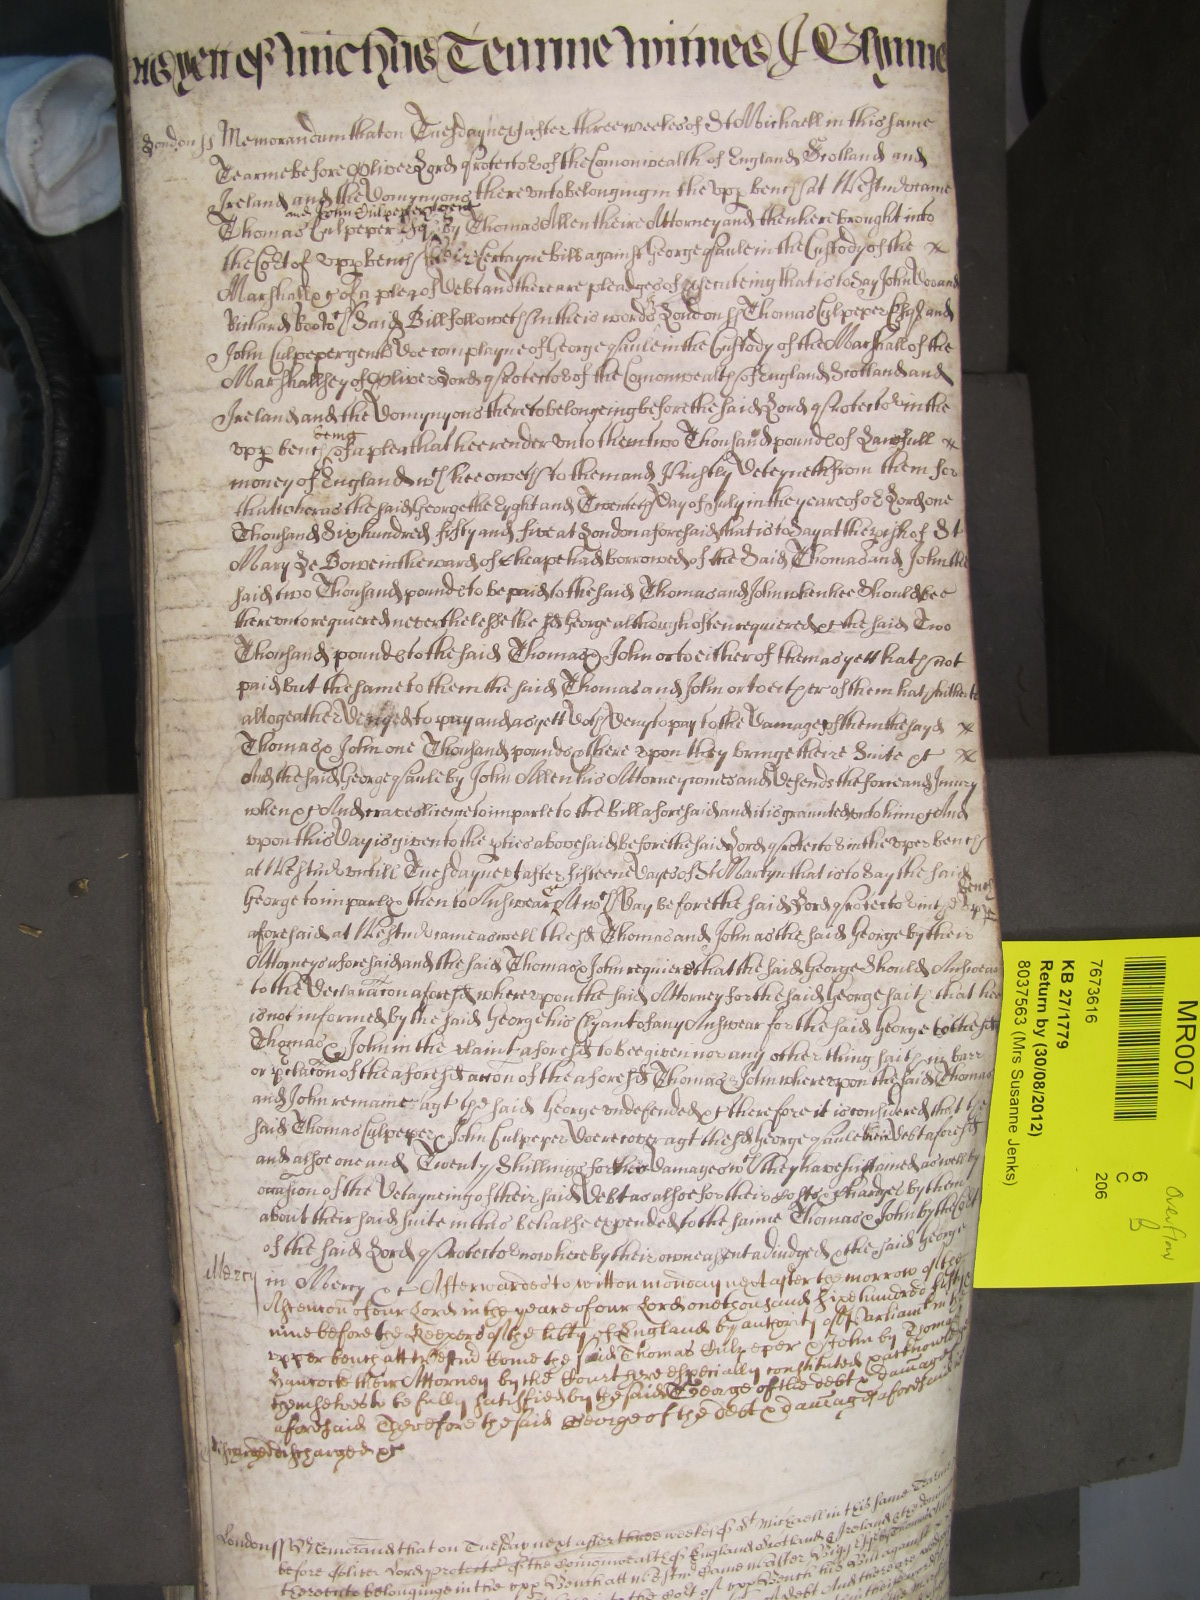 yett of Michas Tearme Witnes J Glynne
London ss Memorandum that on Tuesday next after three weekes of St Michaell in this same
Tearme before Oliver Lord Protector of the Comonwealth of England Scotland and
Ireland and the Domynyons there unto belonging in the upp bench at Westm came
and John Culpeper gent
Thomas Culpeper Esq by Thomas Allen theire Attorney and then here brought into
the Cort of upp bench theire Certayne bill against George Paule in the Custody of the
Marshall &c of a plea of Debt and there are pledges of prosecuteing that is to Say John Doo and
Richard Roo wch Said Bill followeth in theis words London ss Thomas Culpeper Esq and
John Culpeper gent Doe complayne of George Paule in the Custody of the Marshall of the
Marshallsey of Oliver Lord Protector of the Comonwealth of England Scotland and
Ireland and the Domynyons thereto belongeing before the said Lord Protector in the
being
upp bench of a plea that hee render unto them two Thousand pounds of Lawfull
money of England wch hee oweth to them and Iniustly Deteyneth from them for
that wheras the said George the Eyght and Twentieth Day of July in the yeare of or Lord one
Thousand Six hundred fifty and five at London aforesaid that is to Say at the pish of St
Mary Le Bowe in the ward of Cheape had borrowed of the Said Thomas and John the
said two Thousand pounds to be paid to the said Thomas and John when hee Should bee
thereunto requiered neverthelesse the sd George although often requiered &c the said Two
Thousand pounds to the said Thomas & John or to either of them as yett hath not
paid but the same to them the said Thomas and John or to either of them hath hitherto
altogeather Denyed to pay and as yett doth Deny to pay to the Damage of them the sayd
Thomas & John one Thousand pounds & there upon they bringe theire Suite &c
And the said George Paule by John Allen his Attorney comes and defends the force and Iniury
when &c And craves licence to imparle to the Bill aforesaid and it is graunted unto him &c And
upon this Day is given to the pties abovesaid before the said Lord Protector in the upper bench
at Westm untill Tuesday next after fifteene Dayes of St Martyn that is to say the said
George to imparle & then to Answear &c At wch Day before the said Lord Protector in the upper
bench
aforesaid at Westm came aswell the sd Thomas and John as the said George by their
Attorneys aforesaid and the said Thomas & John requiere that the said George Should Answear
to the Declaracon aforesd whereupon the said Attorney for the said George saith that hee
is not informed by the said George his Clyant of any Answear for the said George to the sd
Thomas & John in the plaint aforesd to bee given nor any other thing saith in barr
or of the aforesd accon of the aforesd Thomas & John whereupon the said Thomas
and John remaine agt the said George undefended &c therefore it is considered that the
said Thomas Culpeper & John Culpeper Doe recover agt the sd George Paule their debt aforesd
and alsoe one and Twenty Shillings for their Damages wch they have sustained aswell by
occasion of the Detayneing of their said Debt as alsoe for their costs & charges by them
about their said suite in this behalfe expended to the same Thomas & John by the Cort
of the said Lord Protector now here by their owne assent adiudged & the said George
Mercy
in Mercy &c Afterwardes to witt on monday next after the morrow of the
Ascencon of our Lord in the yeare of our Lord one thousand sixe hundred fiftie
nine before the Keepers of the libty of England by authority of Parliamt in the
upper bench att Westm Come the said Thomas Culpeper & John by Thomas
Hancock their Attorney by the Court here especially constituted & acknowledge
themselves to be fully satisfied by the said George of the debt & damages
aforesaid Therefore the said George of the debt & damages aforesaid is
discharged &c
London ss Memorand that on Tuesday next after three weekes of St Michaell in this same Tearme
before Oliver Lord Protector of the Comonwealth of England Scotland & Ireland & the
thereunto belonginge in the upp Bench att Westm Came
MR007
7673616
KB 27/1779
Return by (30/08/2012)
8037563 (Mrs Susanne Jenks)
6
C
206
Overflow
B